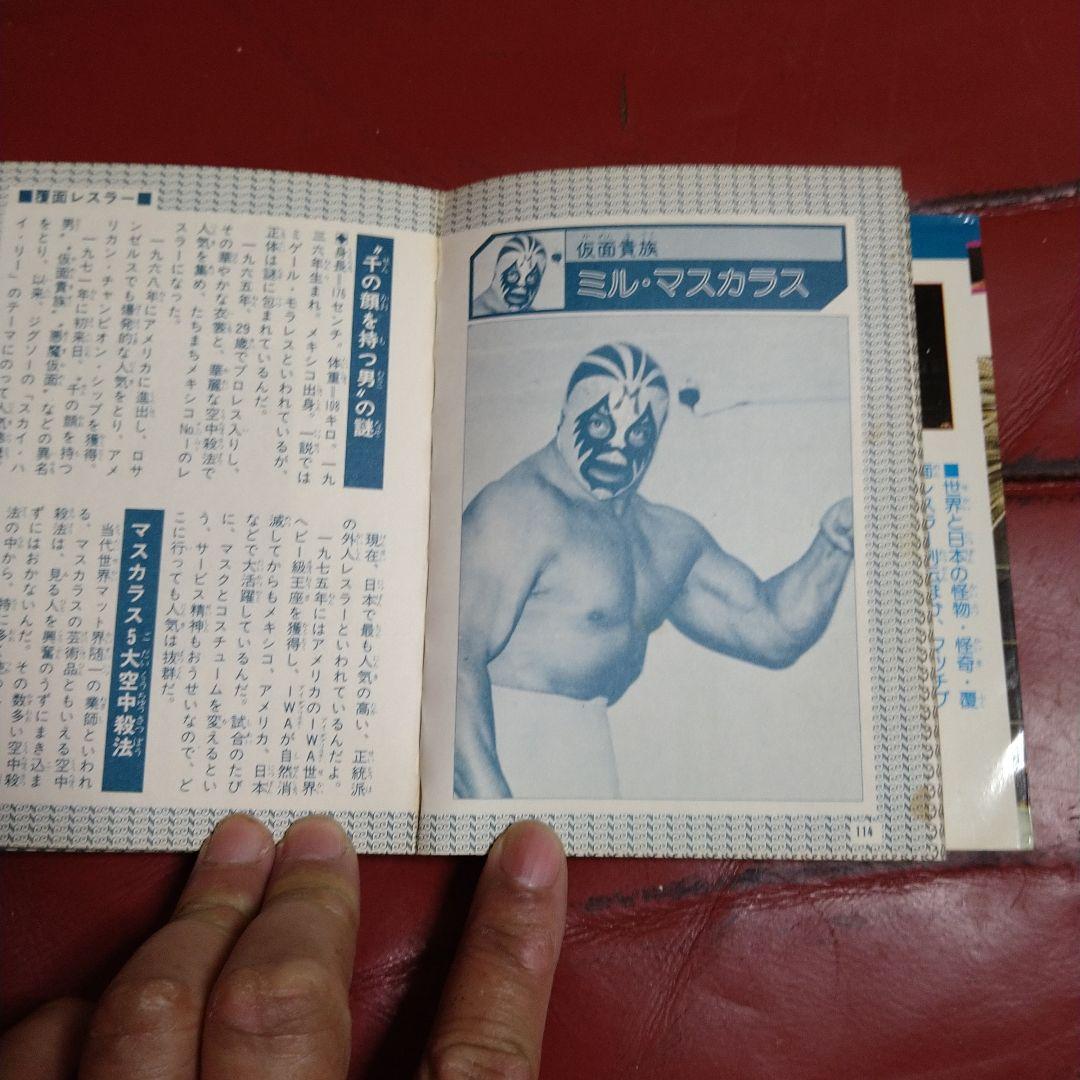 仮面貴族
ミル・マスカラス
114
■覆面レスラー■
“千の顔を持つ男”の謎
◆身長＝176センチ。体重＝108キロ。一九
三六年生まれ。メキシコ出身。一説では
ミゲール・モラレスといわれているが、
正体は謎に包まれているんだ。
一九六五年、29歳でプロレス入りし、
その華やかな衣装と、華麗な空中殺法で
人気を集め、たちまちメキシコNo.1のレ
スラーになった。
一九六八年にアメリカに進出し、ロサ
ンゼルスでも爆発的な人気をとり、アメ
リカン・チャンピオン・シップを獲得。
一九七一年に初来日。“千の顔を持つ
男”“仮面貴族”“悪魔仮面”などの異名
をとり、以来、ジグソーの「スカイ・ハ
イ・リー」のテーマにのって
現在、日本で最も人気の高い、正統派
の外人レスラーといわれているんだよ。
一九七五年にはアメリカのIWA世界
ヘビー級王座を獲得し、IWAが自然消
滅してからもメキシコ、アメリカ、日本
などで大活躍しているんだ。試合のたび
に、マスクとコスチュームを変えるとい
う、サービス精神もおうせいなので、ど
こに行っても人気は抜群だ。
マスカラス5大空中殺法
当代世界マット界随一の業師といわれ
る、マスカラスの芸術品ともいえる空中
殺法は、見る人を興奮のうずにまき込ま
ずにはおかないんだ。その数多い空中殺
法の中から、特に
■世界と日本の怪物・怪奇・覆
面レスラー